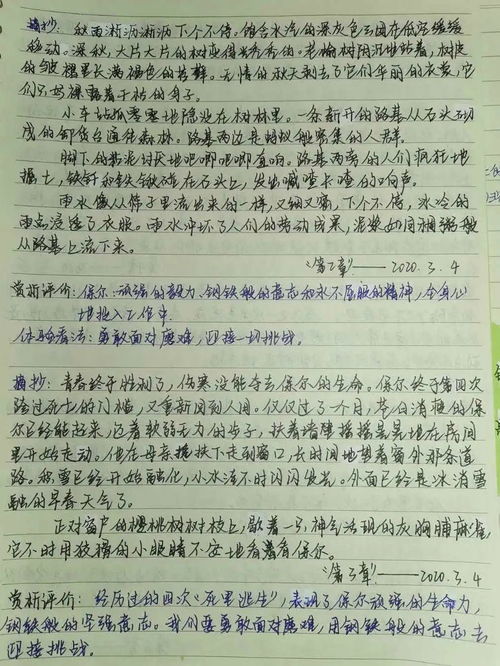 摘抄：秋雨淅沥淅沥下个不停。饱含水汽的深灰色云团在低空缓缓
移动。深秋，大片大片的树变得光秃秃的。老榆树阴沉地站着，树皮
的皱褶里长满褐色的苔藓。无情的秋天剥去了它们华丽的衣裳，它
们只好裸露着干枯的身子。
小车站孤零零地隐没在树林里。一条新开的路基从石头砌
成的卸货台通往森林。路基两边是蚂蚁般密集的人群。
脚下的黏泥讨厌地吧唧吧唧直响。路基两旁的人们疯狂地
掘土，铁钎和铁锹碰在石头上，发出喊喳卡喳的响声。
雨水像从筛子里流出来的一样，又细又密，下个不停，冰冷的
雨点浸透了衣服。雨水冲坏了人们的劳动成果，泥浆如同稠粥般
从路基上流下来。
《第2章》——2020.3.4
赏析评价：保尔：顽强的毅力、钢铁般的意志和永不屈服的精神，全身心
地投入工作中。
体验看法：勇敢面对磨难，迎接一切挑战。
摘抄：青春终于胜利了，伤寒没能夺去保尔的生命。保尔终于第四次
跨过死亡的门槛，又重新回到人间。仅仅过了一个月，苍白消瘦的保
尔已经能起来，迈着软弱无力的步子，扶着墙壁摇摇晃晃地在房间
里开始走动。他在母亲搀扶下走到窗口，长时间地望着窗外那条道
路。积雪已经开始融化，小水洼不时闪闪发光。外面已经是冰消雪
融的早春天气了。
正对窗户的樱桃树树枝上，歇着一只神气活现的灰胸脯麻雀，
它不时用狡猾的小眼睛不安地看看保尔。
《第3章》——2020.3.4
赏析评价：经历过的四次“死里逃生”，表现了保尔顽强的生命力，
钢铁般的坚强意志。我们要勇敢面对磨难，用钢铁般的意志去
迎接挑战。